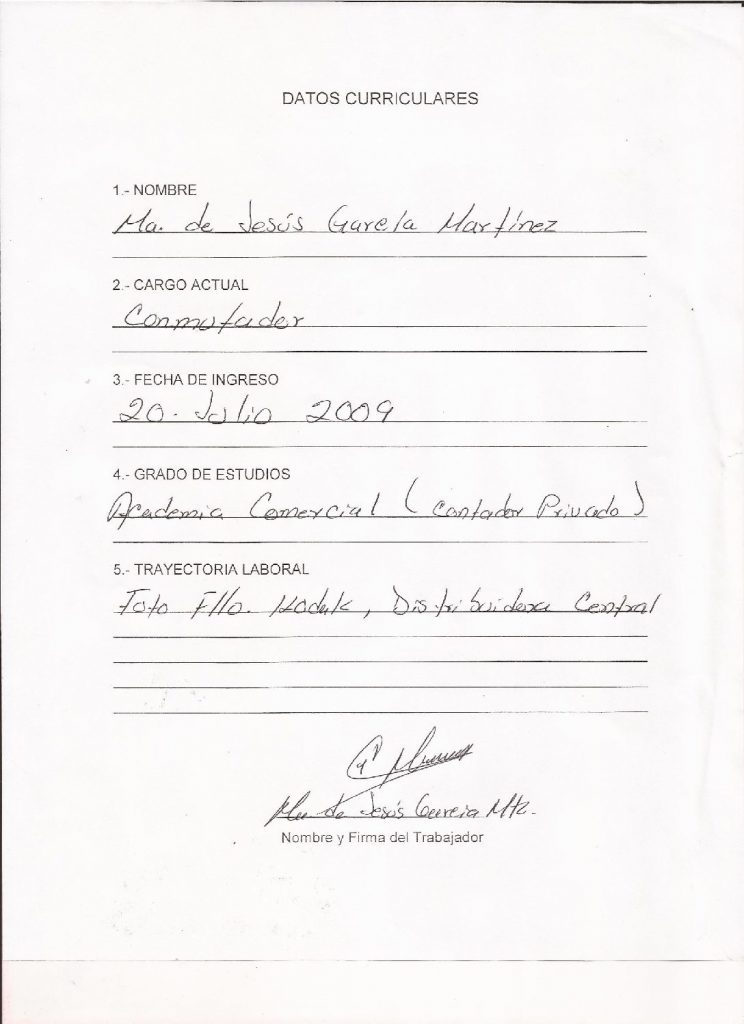 DATOS CURRICULARES
1.- NOMBRE
Ma. de Jesús García Martínez
2.- CARGO ACTUAL
Conmutador
3.- FECHA DE INGRESO
20. Julio 2009
4.- GRADO DE ESTUDIOS
Academia Comercial (Contador Privado)
5.- TRAYECTORIA LABORAL
Foto Fllo. Kodak, Distribuidora Central
Ma de Jesús García Mtz.
Nombre y Firma del Trabajador